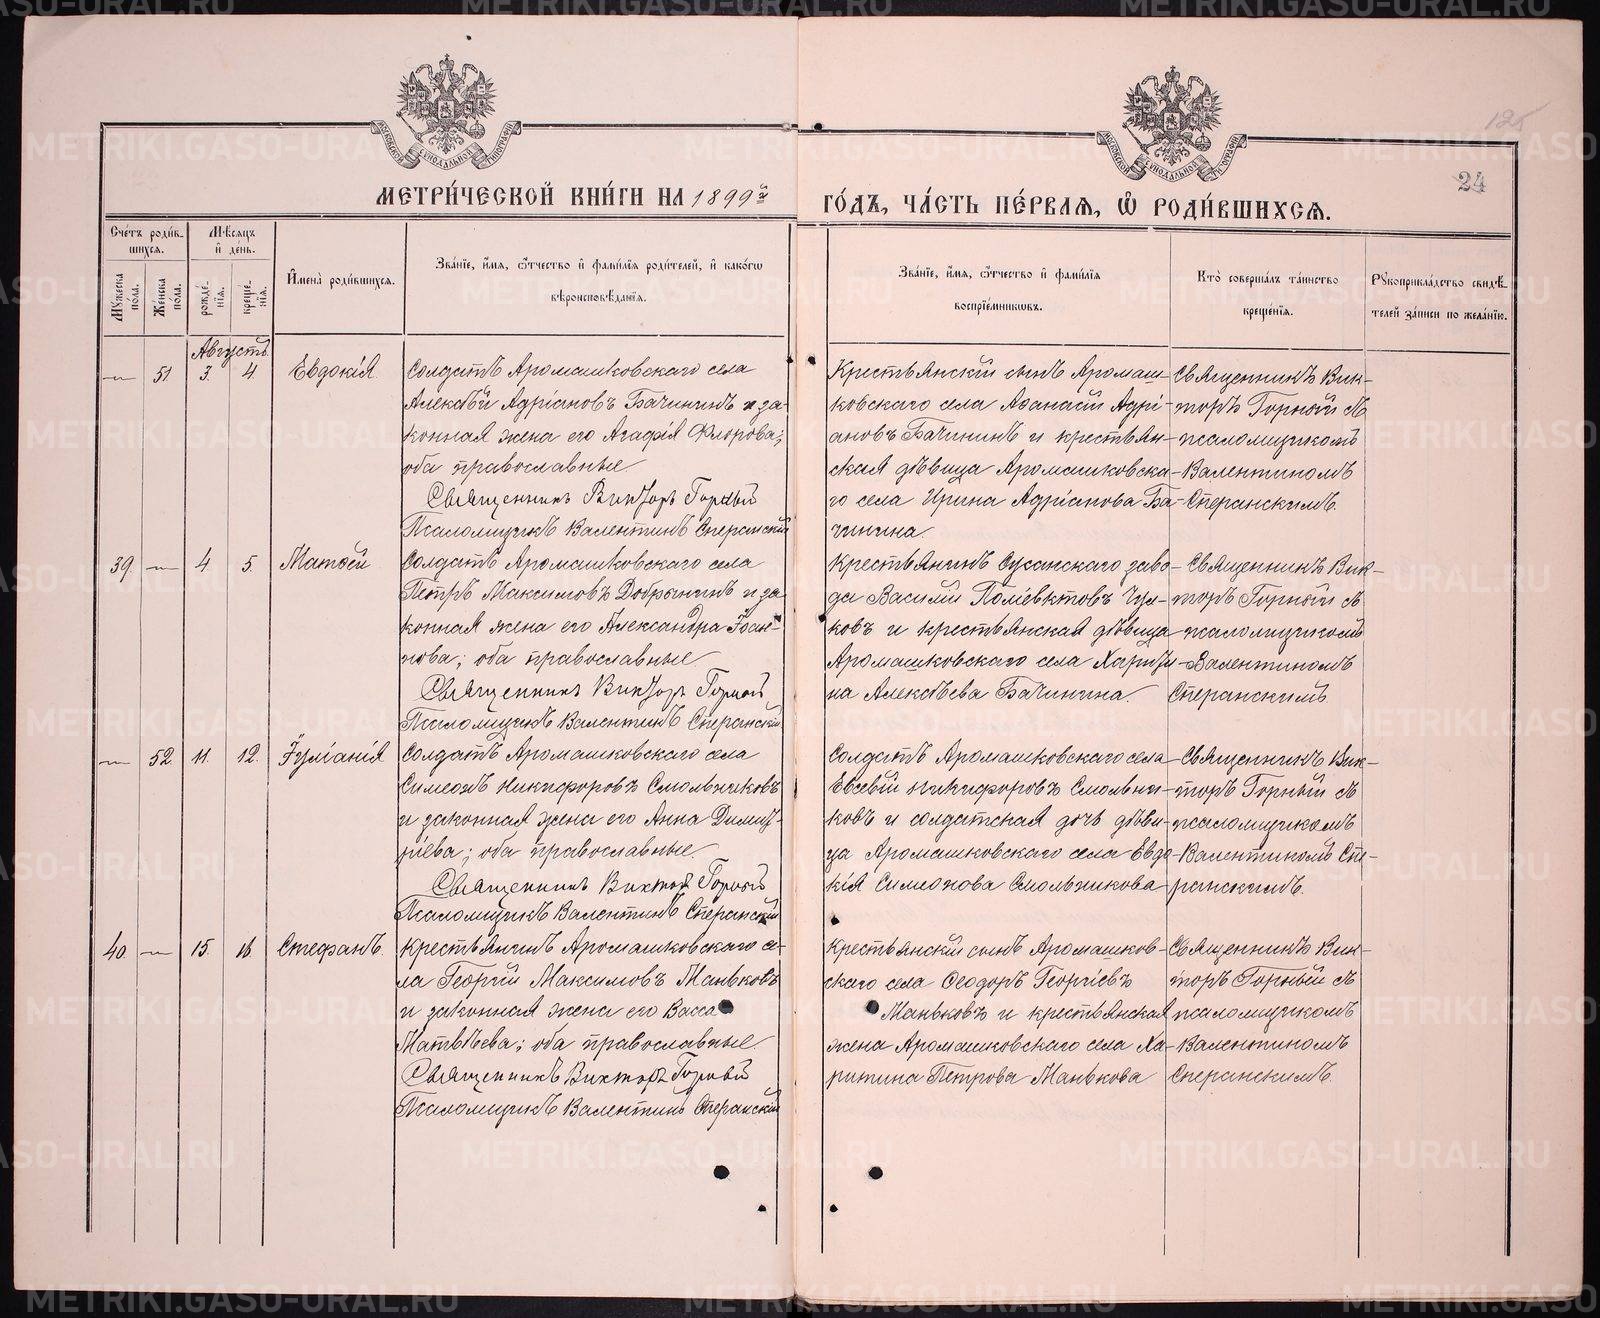 МЕТРИ́ЧЕСКОЙ КНИ́ГИ НА 1899й
ГО́ДЪ, ЧА́СТЬ ПЕ́РВАѦ, Ѡ҆ РОДИ́ВШИХСѦ.
125
24
МОСКОВСКОЙ СѴНОДАЛЬНОЙ ТИПОГРАФІИ
МОСКОВСКОЙ СѴНОДАЛЬНОЙ ТИПОГРАФІИ
Сче́тъ роди́в-
шихсѧ.
Мѣ́сѧцъ
и҆ де́нь.
Мꙋ́жеска по́ла.
Же́нска по́ла.
рожде́-нїѧ.
креще́-нїѧ.
И҆мена̀ роди́вшихсѧ.
Зва́нїе, и҆́мѧ, ѻ҆́тчество и҆ фамѝлїѧ роди́телей, и҆ како́гѡ
вѣроисповѣ́данїѧ.
Зва́нїе, и҆́мѧ, ѻ҆́тчество и҆ фамѝлїѧ
воспрїе́мникѡвъ.
Кто̀ соверша́лъ та́инство
креще́нїѧ.
Рꙋкоприкла́дство свидѣ́-
телей за́писи по жела́нїю.
Августъ
— 51. 3. 4. Евдокія
Солдатъ Аромашковскаго села
Алексѣй Адріановъ Бачининъ и за-
конная жена его Агафія Флорова;
оба православные
Священникъ Викторъ Горный
Псаломщикъ Валентинъ Сперанскій
Крестьянскій сынъ Аромаш-
ковскаго села Аѳанасій Адрі-
ановъ Бачининъ и крестьян-
ская дѣвица Аромашковска-
го села Ирина Адріанова Ба-
чинина.
Священникъ Вик-
торъ Горный съ
псаломщикомъ
Валентиномъ
Сперанскимъ.
39. — 4. 5. Матѳей
Солдатъ Аромашковскаго села
Петръ Максимовъ Добрынинъ и за-
конная жена его Александра Іоан-
нова; оба православные
Священникъ Викторъ Горный
Псаломщикъ Валентинъ Сперанскій
Крестьянинъ Сусанскаго заво-
да Василій Поліевктовъ Чул-
ковъ и крестьянская дѣвица
Аромашковскаго села Харити-
на Алексѣева Бачинина.
Священникъ Вик-
торъ Горный съ
псаломщикомъ
Валентиномъ
Сперанскимъ
— 52. 11. 12. Іуліанія
Солдатъ Аромашковскаго села
Симеонъ Никифоровъ Смольниковъ
и законная жена его Анна Димит-
ріева; оба православные.
Священникъ Викторъ Горный
Псаломщикъ Валентинъ Сперанскій
Солдатъ Аромашковскаго села
Евсевій Никифоровъ Смольни-
ковъ и солдатская дочь дѣви-
ца Аромашковскаго села Евдо-
кія Симеонова Смольникова
Священникъ Вик-
торъ Горный съ
псаломщикомъ
Валентиномъ Спе-
ранскимъ.
40. — 15. 16. Стефанъ.
Крестьянинъ Аромашковскаго се-
ла Георгій Максимовъ Маньковъ
и законная жена его Васса
Матвѣева; оба православные
Священникъ Викторъ Горный
Псаломщикъ Валентинъ Сперанскій
Крестьянскій сынъ Аромашков-
скаго села Ѳеодоръ Георгіевъ
Маньковъ и крестьянская
жена Аромашковскаго села Ха-
ритина Петрова Манькова
Священникъ Вик-
торъ Горный съ
псаломщикомъ
Валентиномъ
Сперанскимъ.
METRIKI.GASO-URAL.RU